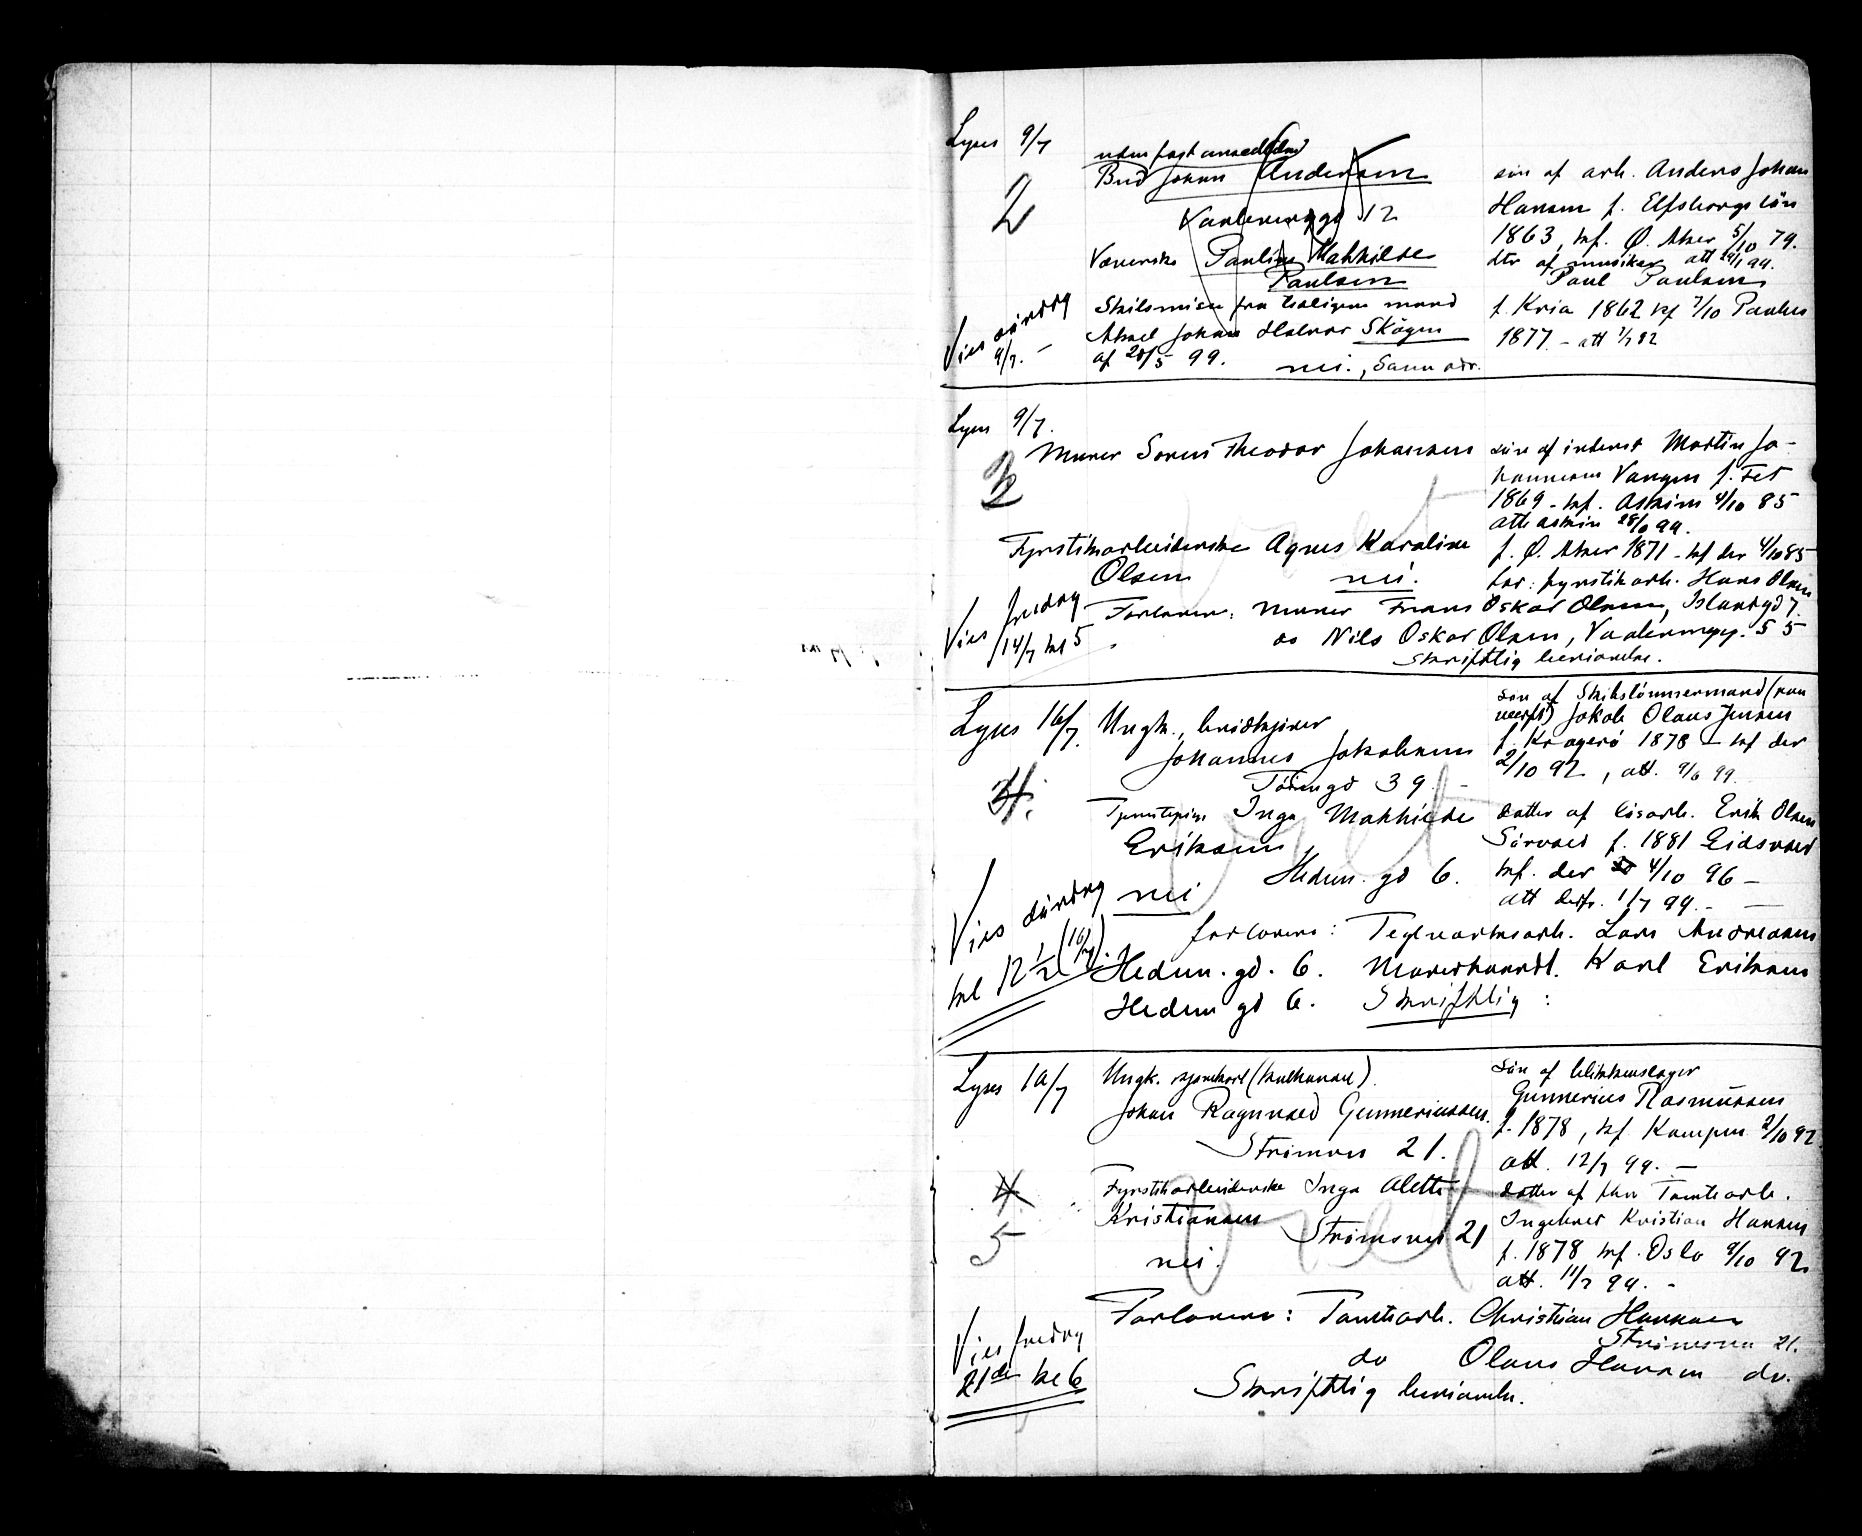 Lyses 9/7
uden fast ansættelse
Bud Johan Andersen
Vaalerenggd 12
2
Væverske Pauline Mathilde
Paulsen
Skilsmisse fra tidligere mand
Johan Halvor Skøgen
af 20/5 99.
nei., Samme adr.
Vies søndag
9/7. -
søn af arb. Anders Johan
Hansen f. Elfsborgs län
1863, kf. Ø. Aker 5/10 79.
dtr af musiker
Paul Paulsen
f. Kria 1862 kf 7/10 Paulus
1877. - att 1/7 82
Lyses 9/7.
Murer Søren Theodor Johannesen
Fyrstikarbeiderske Agnes Karoline
Olsen nei.
Vies fredag
14/7 kl 5
søn af inderst Martin Jo-
hannesen Vangen f. Fet
1869 - kf. Askim 4/10 85
att askim
f. Ø. Aker 1871 - kf der 4/10 85
far: fyrstikarb. Hans Olsen
Forlovere: Murer Frans Oskar Olsen, Islandgd 7.
do Nils Oskar Olsen, Vaalerenggd. 55
Skriftlig bevidnelse.
Lyses 16/7.
Ungk., brødkjører
Johannes Jakobsen
Tøiengd 39.
4.
Tjenestepige Inga Mathilde
Eriksen
Hedem. gd 6.
nei
Vies søndag
kl 12 1/2 (16/7).
søn af
Jakob Olaus Jensen
f. Kragerø 1878 - kf der
2/10 92, att. 9/6 99.
datter af løsarb. Erik Olsen
Sørvald f. 1881 Eidsvold
kf. der 4/10 96 -
att derfr. 1/7 99. -
forlovere: Teglverksarb. Lars Andreasen
Hedem. gd. 6. Karl Eriksen
Hedem gd 6. Skriftlig:
Lyses 16/7
Ungk. (kulkjører).
Johan Ragnvald Gunneriussen.
Strømsvn 21.
4
5
Fyrstikarbeiderske Inga Alette
Kristiansen
Strømsvei 21
nei.
Vies fredag
21de kl 6
søn af blikkenslager
Gunnerius Rasmussen
f. 1878, kf Kampen 2/10 92
att. 12/7 99. -
datter af Tomtearb.
Ingebret Kristian Hansen
f. 1878 kf. Oslo 9/10 92
att. 11/7 99. -
Forlovere: Tomtearb. Christian Hansen
Strømsvn 21.
do Olaus Hansen do.
Skriftlig bevidnelse.
viet